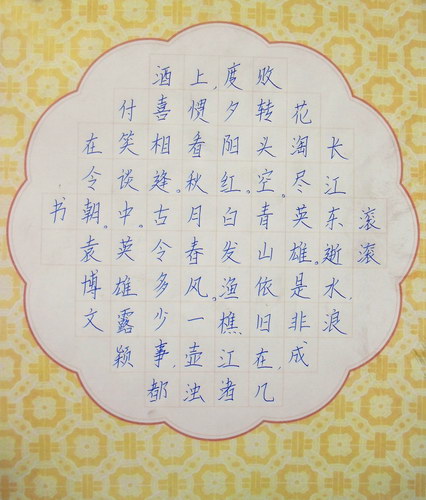 滚滚
长江东逝水,浪
花淘尽英雄。是非成
败转头空。青山依旧在,几
度夕阳红。白发渔樵江渚
上,惯看秋月春风。一壶浊
酒喜相逢。古今多少事,都
付笑谈中。英雄露颖
在今朝。袁博文
书